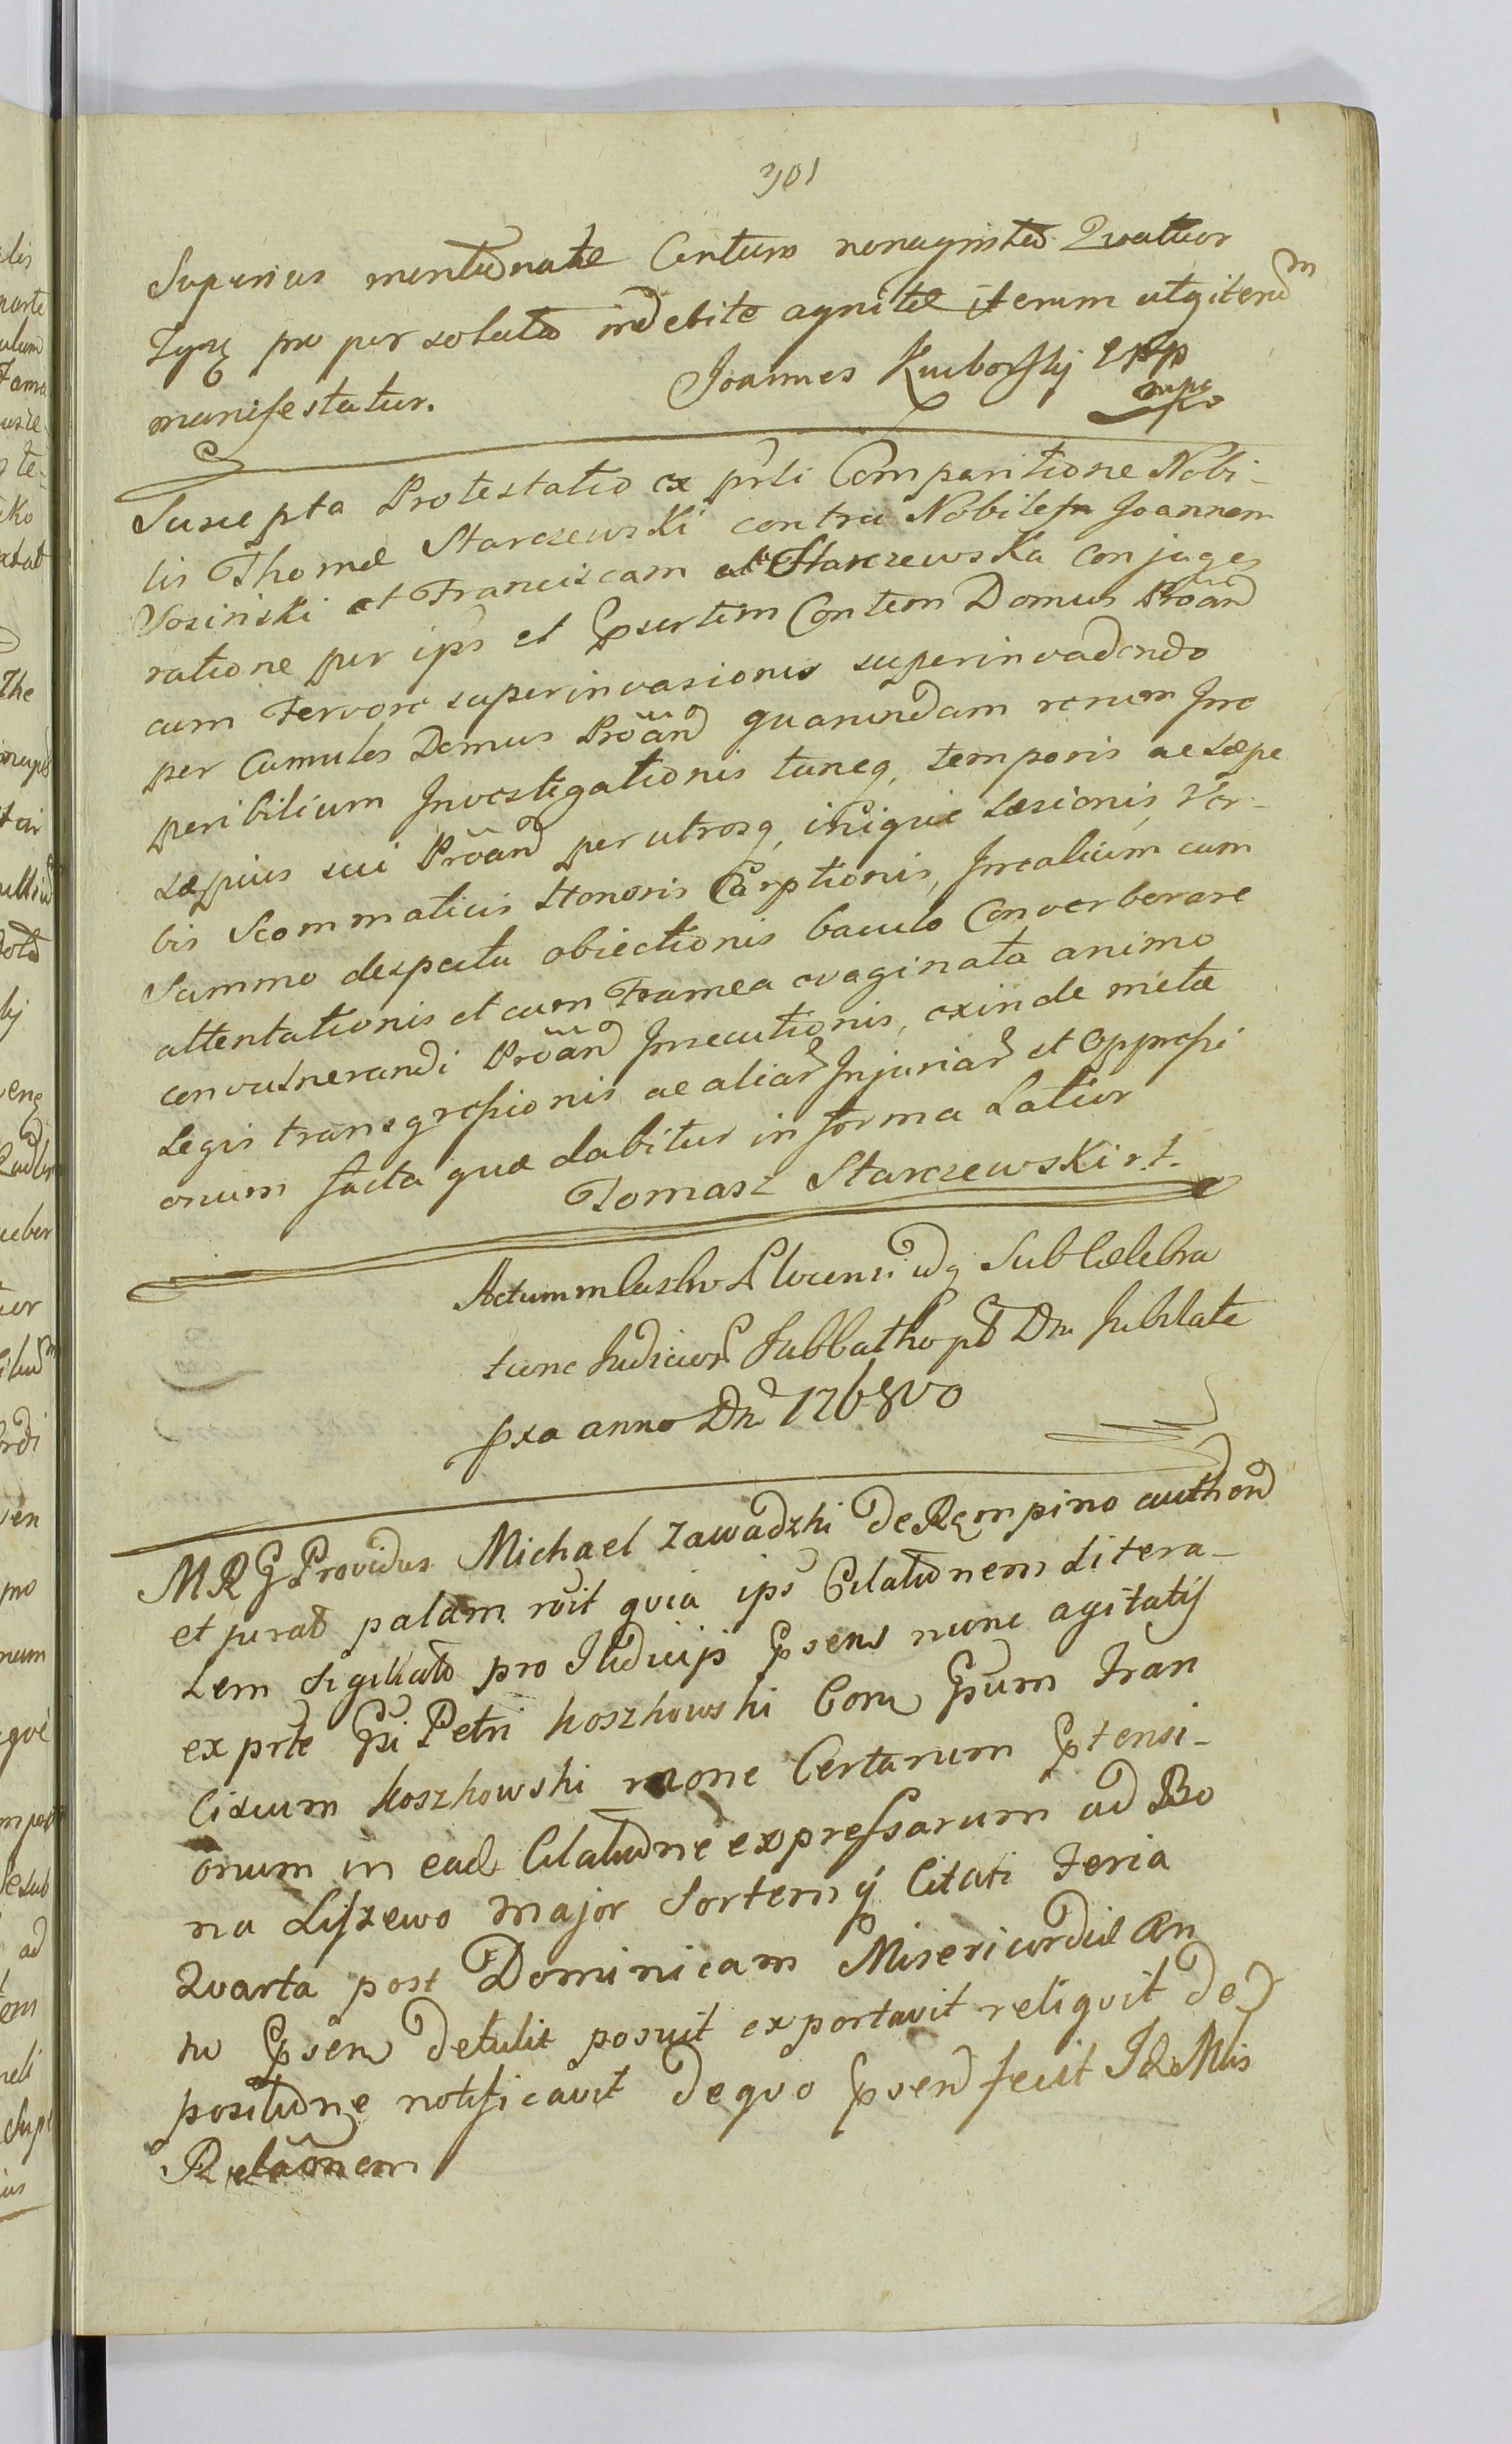 301
Superius mentionatæ Centum nonaginta Quatuor
pro per soluta indebite agnitæ iterum
manifestatur. Joannes Kuiborskj
mpo
Suscepta Protestatio ex prli Comparitione Nobi-
lis Thomæ Starczewski contra Nobilem Joannem
Vosinski et Franciscam de Starczewska conjuges
ratione per ips et Domus Prôand
cum Fervore superinvasionis superinvadendo
per Cumulos Domus Prôand quarundam rerum Jnre
peribilium Jnvestigationis tuncq, temporis ac sæpe
sæpius sui Prôand per utrosq, inique Læsionis, Ver-
bis Scommaticis Honoris Carptionis, Jnrealium cum
Summo despectu obiectionis baculo Converberare
attentationis et cum Framea evaginata animo
convulnerandi Prôand Jnsecutionis, exinde metæ
Legis transgressionis ac aliar Jnjuriar et Oppressi
onum facta quæ dabitur in forma Latior
Tomasz Starczewski r.t.
Actum in Castro Plocensi idq Sub Cælebra
tune Judicior Sabbatho pt Dn Jubilate
pxa anno Dn 1768vo
MRG Providus Michael Zawadzki de Rempino authend
et jurat palam roit quia ips Citationem Litera-
Lem Sigillat pro Judicijs Psens nunc agitatis
ex prte Gsi Petri Koszkowski Com Gsum Fran
ciscum Koszkowski raone Certarum Ptensi-
onum in ead Citatione expressarum ad Bo
na Liszewo major Sortemq Citati Feria
Quarta post Dominicam Misericordiæ An
no Psen detulit posuit exportavit reliquit de
positione notificavit de quo Psend fecit J R Mtis
Relâonem